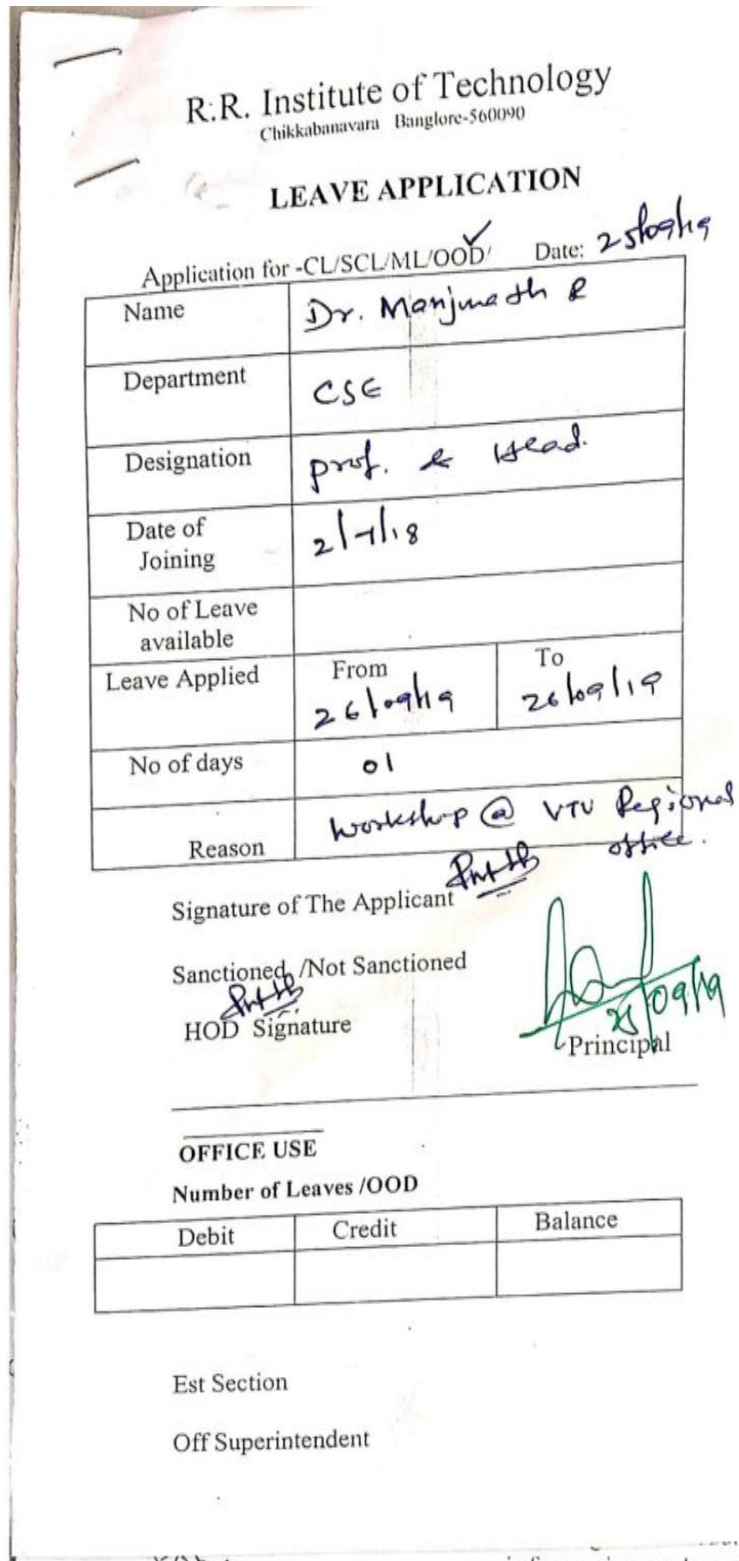 R.R. Institute of Technology
Chikkabanavara Banglore-560090
LEAVE APPLICATION
Application for -CL/SCL/ML/OOD/ Date: 25/09/19
Name Dr. Manjunath R
Department CSE
Designation prof. & Head.
Date of
Joining 2/7/18
No of Leave
available
Leave Applied From To
26/09/19 26/09/19
No of days 01
Reason workshop @ VTU Regional
office.
Signature of The Applicant
Sanctioned /Not Sanctioned
HOD Signature
25/09/19
Principal
OFFICE USE
Number of Leaves /OOD
Debit Credit Balance
Est Section
Off Superintendent